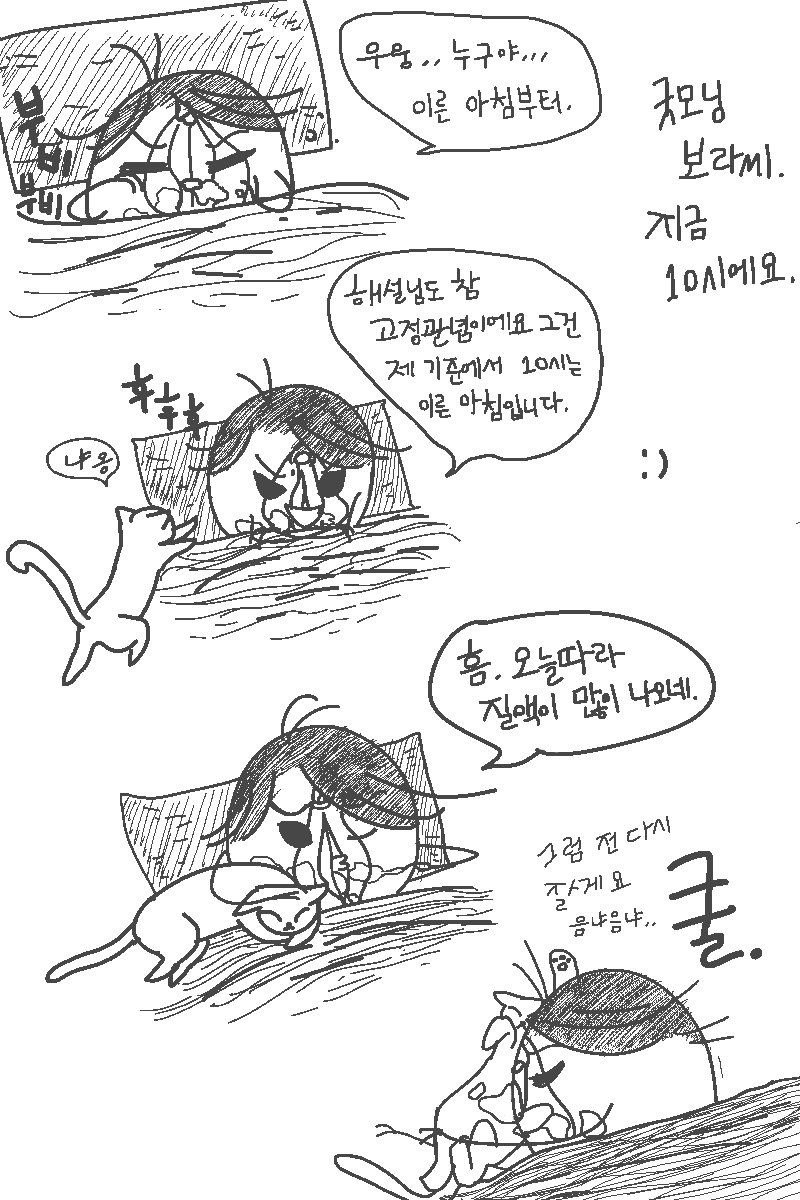 우웅.. 누구야...
이른 아침부터.
부비
부비
굿모닝
보라씨.
지금
10시에요.
해설님도 참
고정관념이에요 그건
제 기준에서 10시는
이른 아침입니다.
후우후
냐옹
:)
흠. 오늘따라
질액이 많이 나오네.
그럼 전 다시
잘게요
음냐음냐..
쿨.